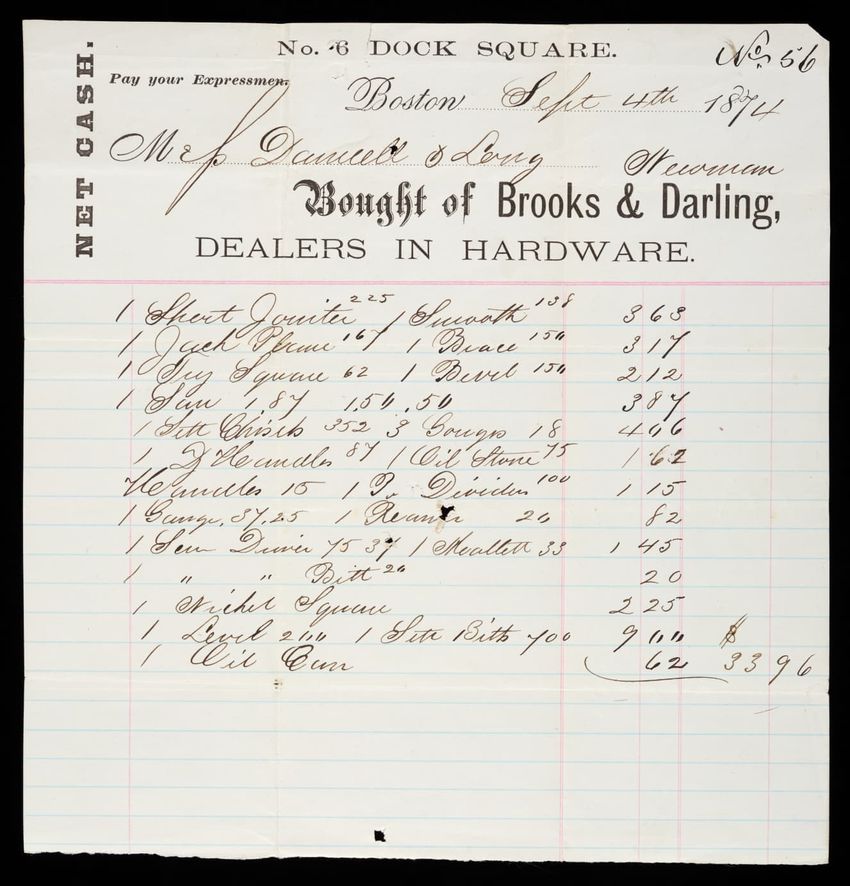 No. 6 DOCK SQUARE.
No. 56
NET CASH.
Pay your Expressmen.
Boston Sept 4th 1874
Mess & Long Newman
Bought of Brooks & Darling,
DEALERS IN HARDWARE.
1 Short Jointer 225 1 Smooth 138 3 63
1 Jack Plane 167 1 Brace 150 3 17
1 Try Square 62 1 Bevel 150 2 12
1 Saw 1,87 1,50 ,50 3 87
1 Sett Chisels 352 3 Gouges 18 4 06
1 Z Handles 87 1 Oil Stone 75 1 62
Handles 15 1 Pr Dividers 100 1 15
1 Gauge, 37, 25 1 Reamer 20 82
1 Scru Driver 75 37 1 Mallett 33 1 45
1 " " Bitt 20 20
1 Nickel Square 2 25
1 Level 200 1 Sett Bitts 700 9 00 $
1 Oil Can 62 33 96